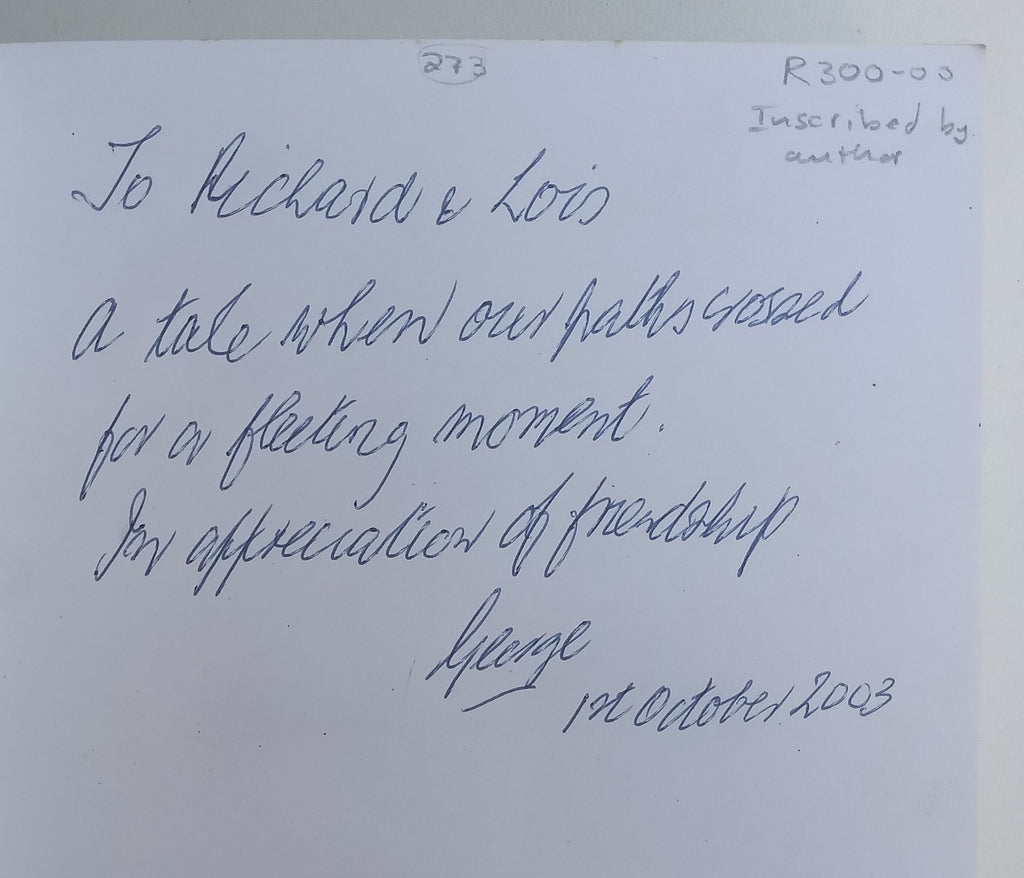 273
R300-00
Inscribed by
author
To Richard & Lois
A tale when our paths crossed
for a fleeting moment.
In appreciation of friendship
George
1st October 2003